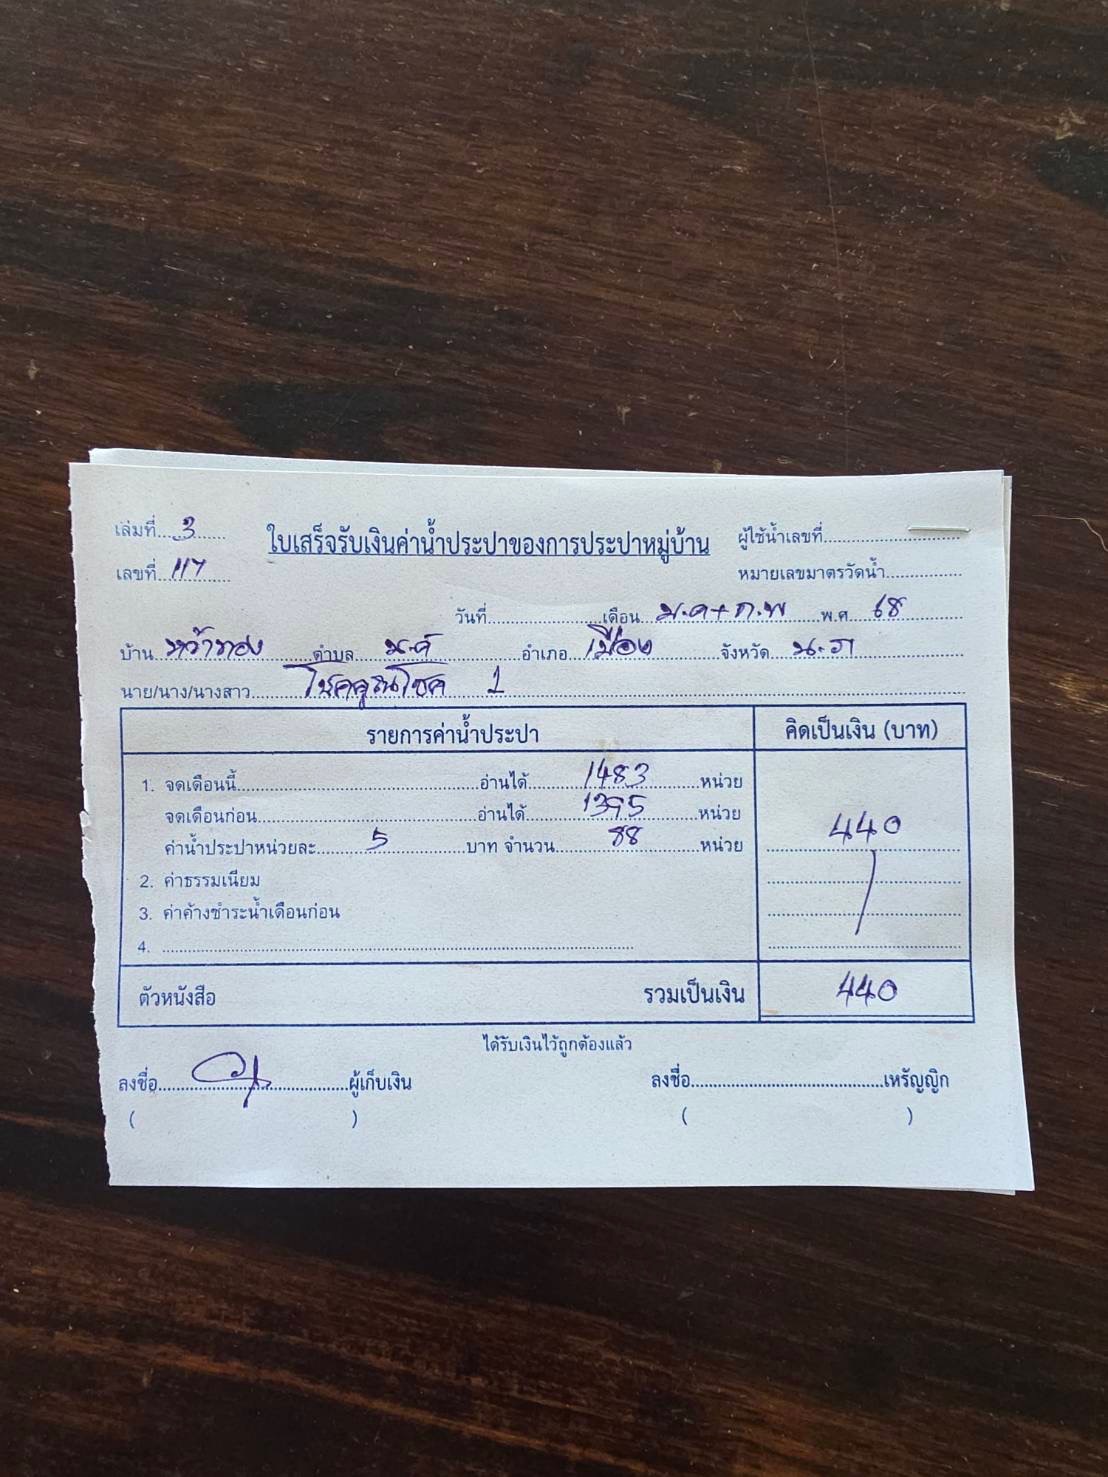 เล่มที่ 3
ใบเสร็จรับเงินค่าน้ำประปาของการประปาหมู่บ้าน
ผู้ใช้น้ำเลขที่
เลขที่ 117
หมายเลขมาตรวัดน้ำ
วันที่ เดือน ม.ค+ก.พ พ.ศ 68
บ้าน หว้าทอง ตำบล อำเภอ เมือง จังหวัด
นาย/นาง/นางสาว โชคคูณโชค 1
รายการค่าน้ำประปา คิดเป็นเงิน (บาท)
1. จดเดือนนี้ อ่านได้ 1483 หน่วย
จดเดือนก่อน อ่านได้ 1395 หน่วย
ค่าน้ำประปาหน่วยละ 5 บาท จำนวน 88 หน่วย 440
2. ค่าธรรมเนียม
3. ค่าค้างชำระน้ำเดือนก่อน
4.
ตัวหนังสือ รวมเป็นเงิน 440
ได้รับเงินไว้ถูกต้องแล้ว
ลงชื่อ ผู้เก็บเงิน ลงชื่อ เหรัญญิก
( ) ( )